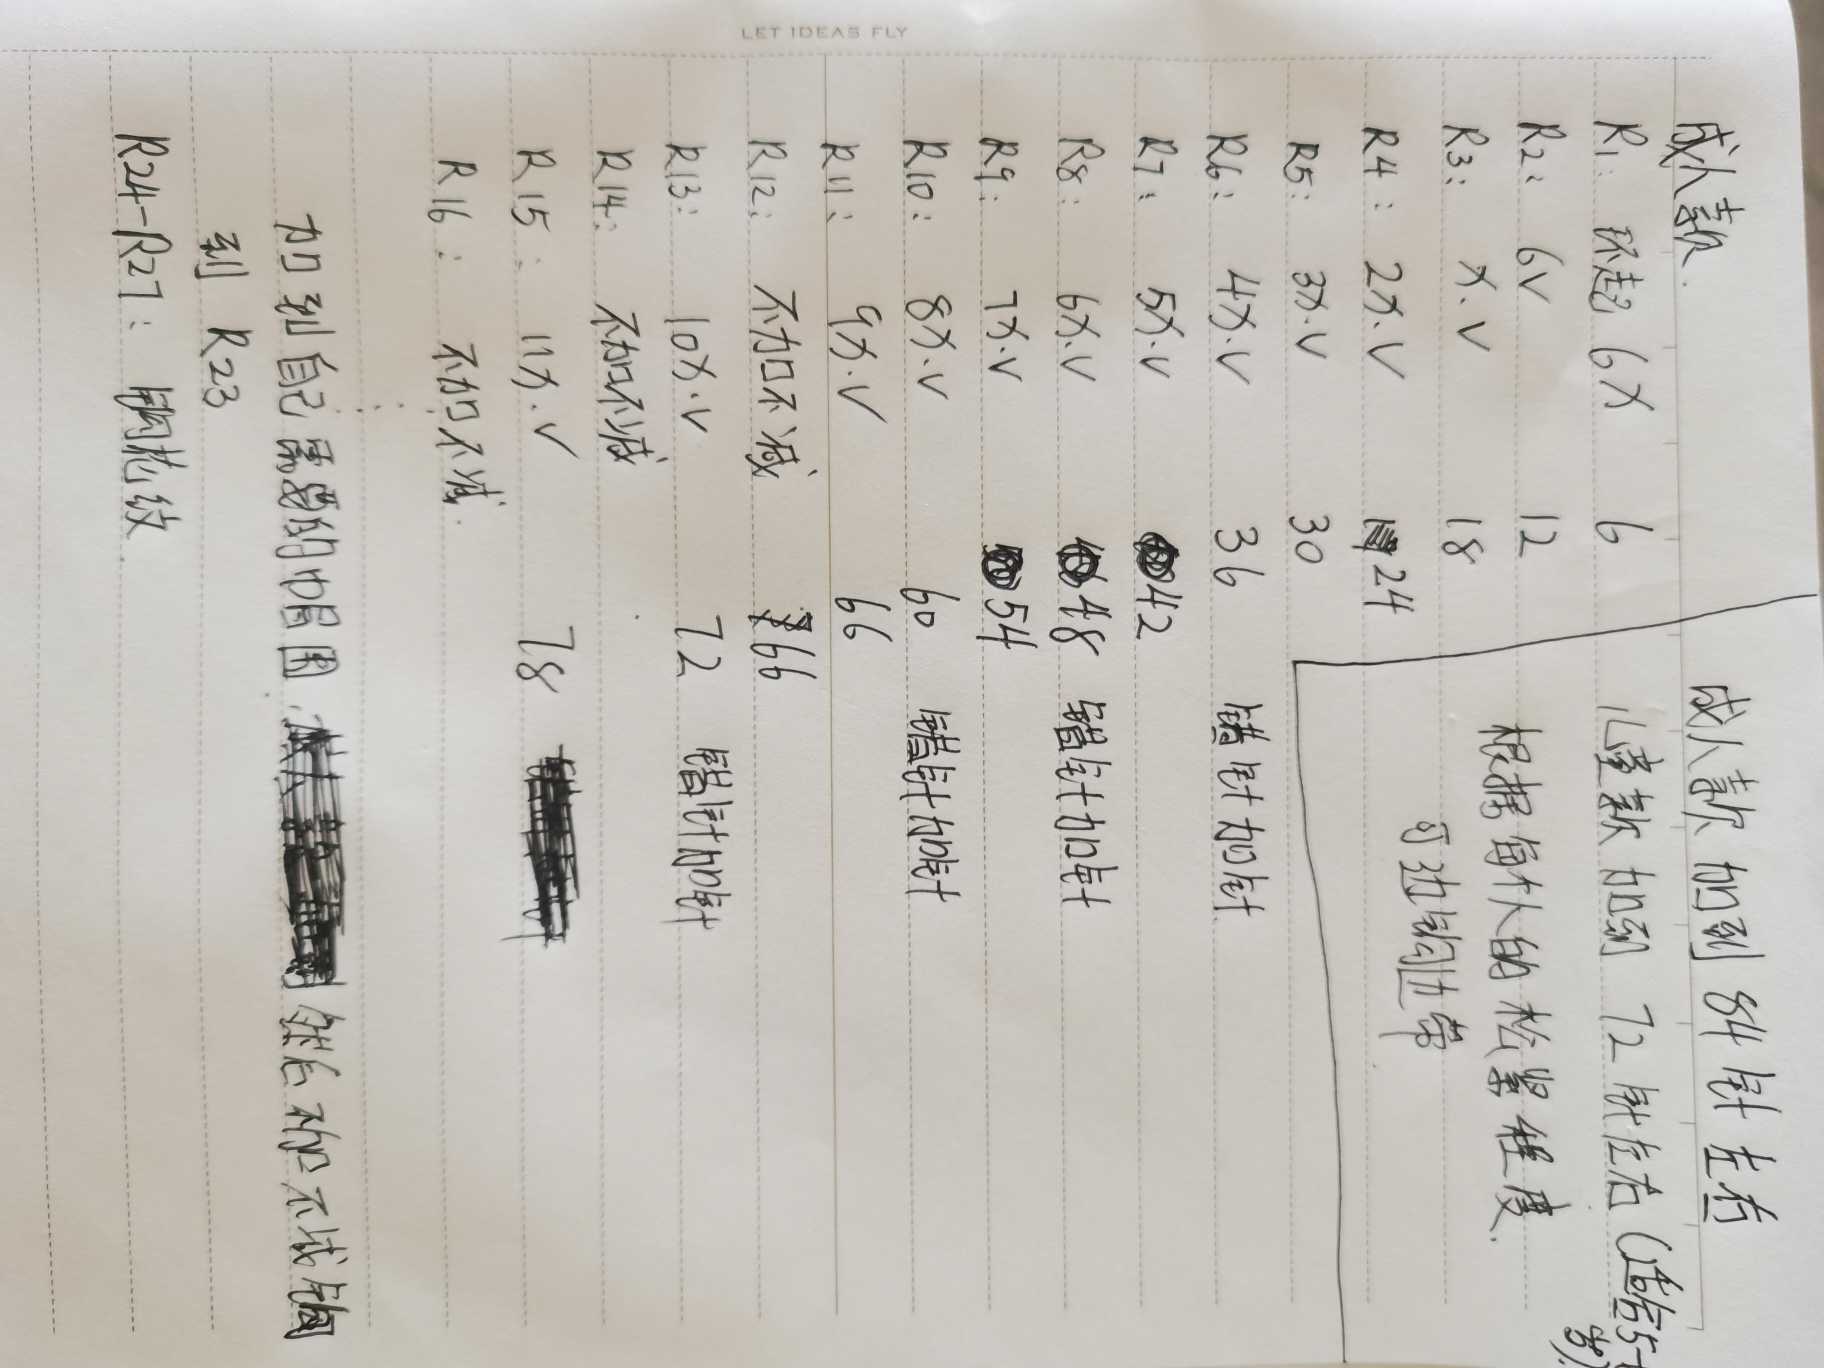 LET IDEAS FLY
成人款.
R1: 环起 6X 6
R2: 6V 12
R3: X.V 18
R4: 2X.V 24
R5: 3X.V 30
R6: 4X.V 36 错针加针
R7: 5X.V 42
R8: 6X.V 48 错针加针
R9: 7X.V 54
R10: 8X.V 60 错针加针
R11: 9X.V 66
R12: 不加不减 66
R13: 10X.V 72 错针加针
R14: 不加不减
R15: 11X.V 78
R16: 不加不减.
......
加到自己需要的帽围. 然后不加不减钩
到 R23
R24-R27: 钩花纹.
成人款加到 84 针左右
儿童款加到 72 针左右 (适合5-
岁).
根据每个人的松紧程度.
可边钩边带